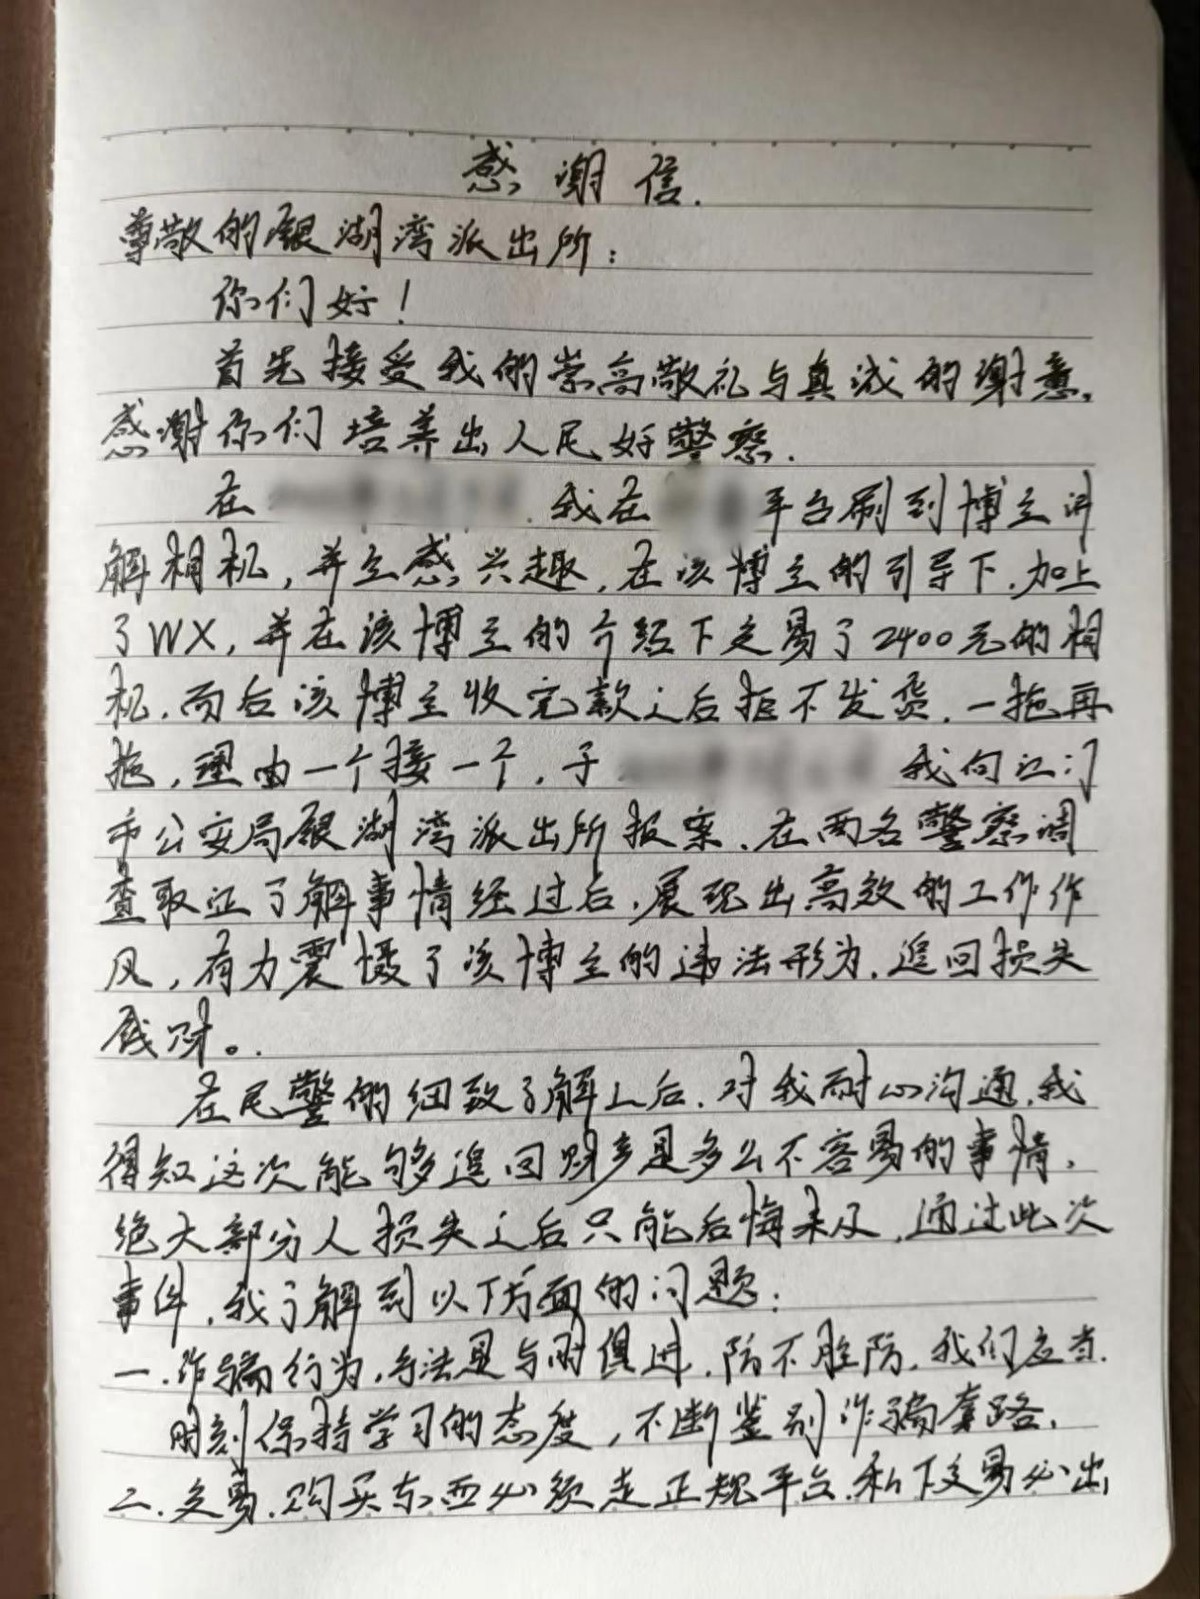 感谢信.
尊敬的银湖湾派出所：
你们好！
首先接受我的崇高敬礼与真诚的谢意,
感谢你们培养出人民好警察.
在 我在 平台刷到博主讲
解相机，并生感兴趣，在该博主的引导下，加上
了WX，并在该博主的介绍下交易了2400元的相
机，而后该博主收完款之后拒不发货，一拖再
拖，理由一个接一个，于 我向江门
市公安局银湖湾派出所报案，在两名警察调
查取证了解事情经过后，展现出高效的工作作
风，有力震慑了该博主的违法形为，追回损失
钱财。.
在民警的细致了解之后，对我耐心沟通，我
得知这次能够追回财产是多么不容易的事情，
绝大部分人损失之后只能后悔莫及，通过此次
事件，我了解到以下方面的问题：
一.诈骗行为，方法是与时俱进，防不胜防，我们应当.
时刻保持学习的态度，不断鉴别诈骗套路.
二.交易.购买东西必须走正规平台，私下交易必出